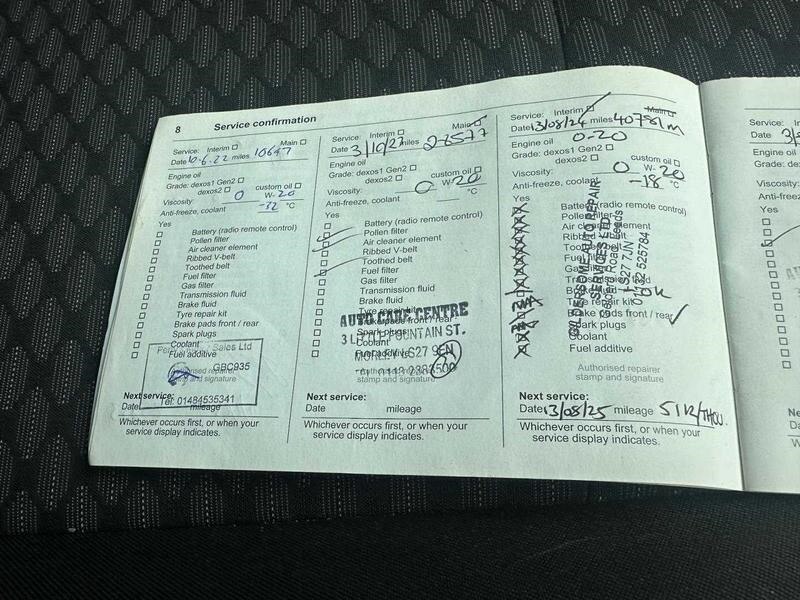 8 Service confirmation
Service: Interim Main
Date 10.6.22 miles 10647
Engine oil
Grade: dexos1 Gen2
dexos2 custom oil
Viscosity: 0 W- 20
Anti-freeze, coolant -32 °C
Yes
Battery (radio remote control)
Pollen filter
Air cleaner element
Ribbed V-belt
Toothed belt
Fuel filter
Gas filter
Transmission fluid
Brake fluid
Tyre repair kit
Brake pads front / rear
Spark plugs
Coolant
Fuel additive
Sales Ltd
GBC935
Authorised repairer
stamp and signature
Tel: 01484535341
Next service:
Date mileage
Whichever occurs first, or when your
service display indicates.
Service: Interim Main
Date 3/10/23 miles 28577
Engine oil
Grade: dexos1 Gen2
dexos2 custom oil
Viscosity: 0 W- 20
Anti-freeze, coolant °C
Yes
Battery (radio remote control)
Pollen filter
Air cleaner element
Ribbed V-belt
Toothed belt
Fuel filter
Gas filter
Transmission fluid
Brake fluid
Tyre repair kit
Brake pads front / rear
Spark plugs
Coolant
Fuel additive
AUTO CARE CENTRE
3 LITTLE FOUNTAIN ST.
MORLEY LS27 9EN
Authorised repairer
stamp and signature
Next service:
Date mileage
Whichever occurs first, or when your
service display indicates.
Service: Interim Main
Date 13/08/24 miles 40781m
Engine oil 0-20
Grade: dexos1 Gen2
dexos2 custom oil
Viscosity: 0 W- 20
Anti-freeze, coolant -18 °C
Yes
Battery (radio remote control)
Pollen filter
Air cleaner element
Ribbed V-belt
Toothed belt
Fuel filter
Gas filter
Transmission fluid
Brake fluid
Tyre repair kit
Brake pads front / rear
Spark plugs
Coolant
Fuel additive
OK
GILDERSOME AUTO REPAIR
SERVICES LTD
LS27 7JN
Authorised repairer
stamp and signature
Next service:
Date 13/08/25 mileage 51K/THOU.
Whichever occurs first, or when your
service display indicates.
Service:
Date
Engine oil
Grade:
Viscosity:
Anti-freeze,
Yes